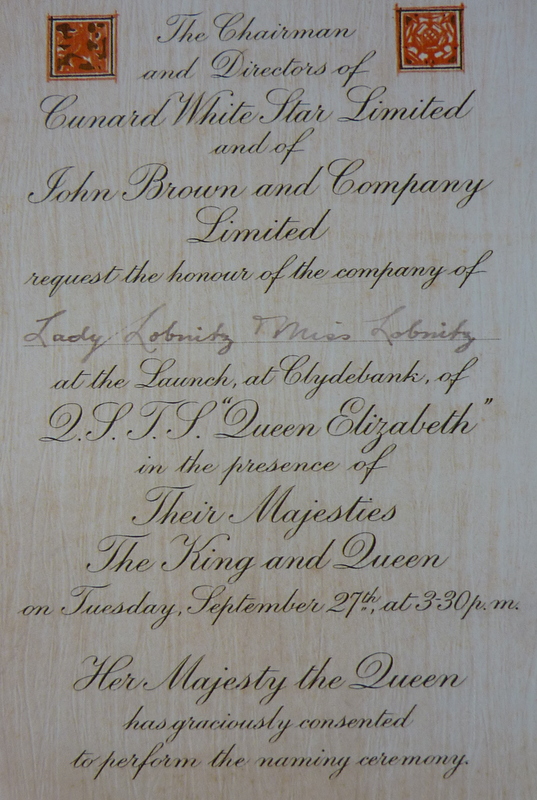 The Chairman
and Directors of
Cunard White Star Limited
and of
John Brown and Company
Limited
request the honour of the company of
Lady Lobnitz & Miss Lobnitz
at the Launch, at Clydebank, of
Q.S.T.S. "Queen Elizabeth"
in the presence of
Their Majesties
The King and Queen
on Tuesday, September 27th, at 3-30 p.m.
Her Majesty the Queen
has graciously consented
to perform the naming ceremony.